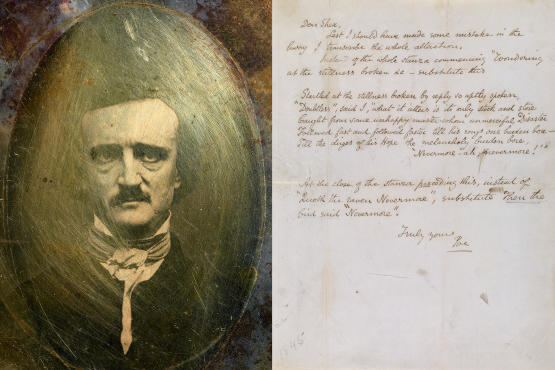 Dear Shea,
Lest I should have made some mistake in the
hurry I transcribe the whole alteration.
Instead of the whole stanza commencing "Wondering
at the stillness broken &c — substitute this
Startled at the stillness broken by reply so aptly spoken,
"Doubtless", said I, "what it utters is its only stock and store
Caught from some unhappy master whom unmerciful Disaster
Followed fast and followed faster till his songs one burden bore —
Till the dirges of his Hope the melancholy burden bore,
"Nevermore — ah nevermore!"
At the close of the stanza preceding this, instead of
"Quoth the raven Nevermore", substitute "Then the
bird said "Nevermore".
Truly yours
Poe
1845